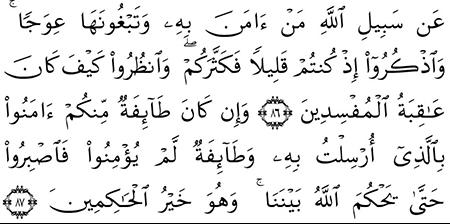 عَن سَبِيلِ ٱللَّهِ مَنْ ءَامَنَ بِهِۦ وَتَبْغُونَهَا عِوَجًا ۚ
وَٱذْكُرُوٓا۟ إِذْ كُنتُمْ قَلِيلًا فَكَثَّرَكُمْ ۖ وَٱنظُرُوا۟ كَيْفَ كَانَ
عَـٰقِبَةُ ٱلْمُفْسِدِينَ ۝٨٦ وَإِن كَانَ طَآئِفَةٌ مِّنكُمْ ءَامَنُوا۟
بِٱلَّذِىٓ أُرْسِلْتُ بِهِۦ وَطَآئِفَةٌ لَّمْ يُؤْمِنُوا۟ فَٱصْبِرُوا۟
حَتَّىٰ يَحْكُمَ ٱللَّهُ بَيْنَنَا ۚ وَهُوَ خَيْرُ ٱلْحَـٰكِمِينَ ۝٨٧